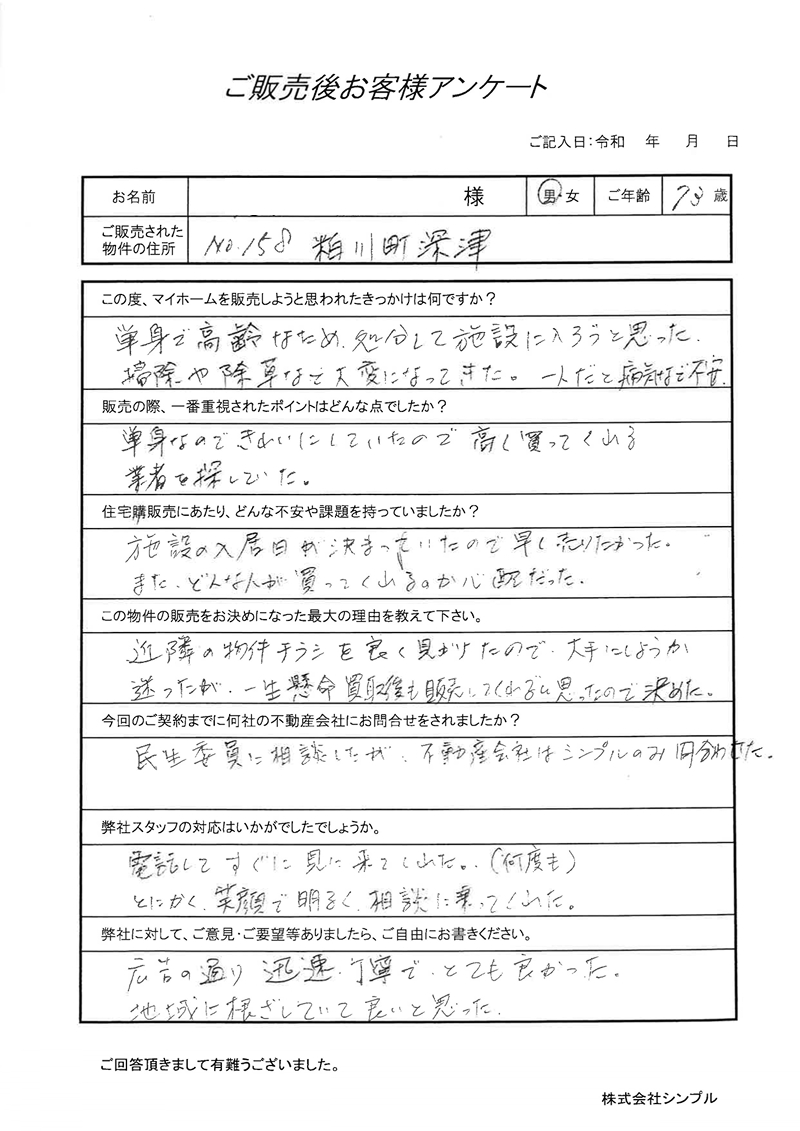 ご販売後お客様アンケート
ご記入日：令和　年　月　日
お名前　様　男・女　ご年齢　73歳
ご販売された
物件の住所　No.158 粕川町深津
この度、マイホームを販売しようと思われたきっかけは何ですか？
単身で高齢なため、処分して施設に入ろうと思った。
掃除や除草など大変になってきた。一人だと病気など不安。
販売の際、一番重視されたポイントはどんな点でしたか？
単身なのできれいにしていたので高く買ってくれる
業者を探していた。
住宅購販売にあたり、どんな不安や課題を持っていましたか？
施設の入居日が決まっていたので早く売りたかった。
また、どんな人が買ってくれるのか心配だった。
この物件の販売をお決めになった最大の理由を教えて下さい。
近隣の物件チラシを良く見かけたので、大手にしようか
迷ったが、一生懸命買取後も販売してくれると思ったので決めた。
今回のご契約までに何社の不動産会社にお問合せをされましたか？
民生委員に相談したが、不動産会社はシンプルのみ問合わせた。
弊社スタッフの対応はいかがでしたでしょうか。
電話してすぐに見に来てくれた。（何度も）
とにかく、笑顔で明るく、相談に乗ってくれた。
弊社に対して、ご意見・ご要望等ありましたら、ご自由にお書きください。
広告の通り迅速・丁寧で、とても良かった。
地域に根ざしていて良いと思った。
ご回答頂きまして有難うございました。
株式会社シンプル